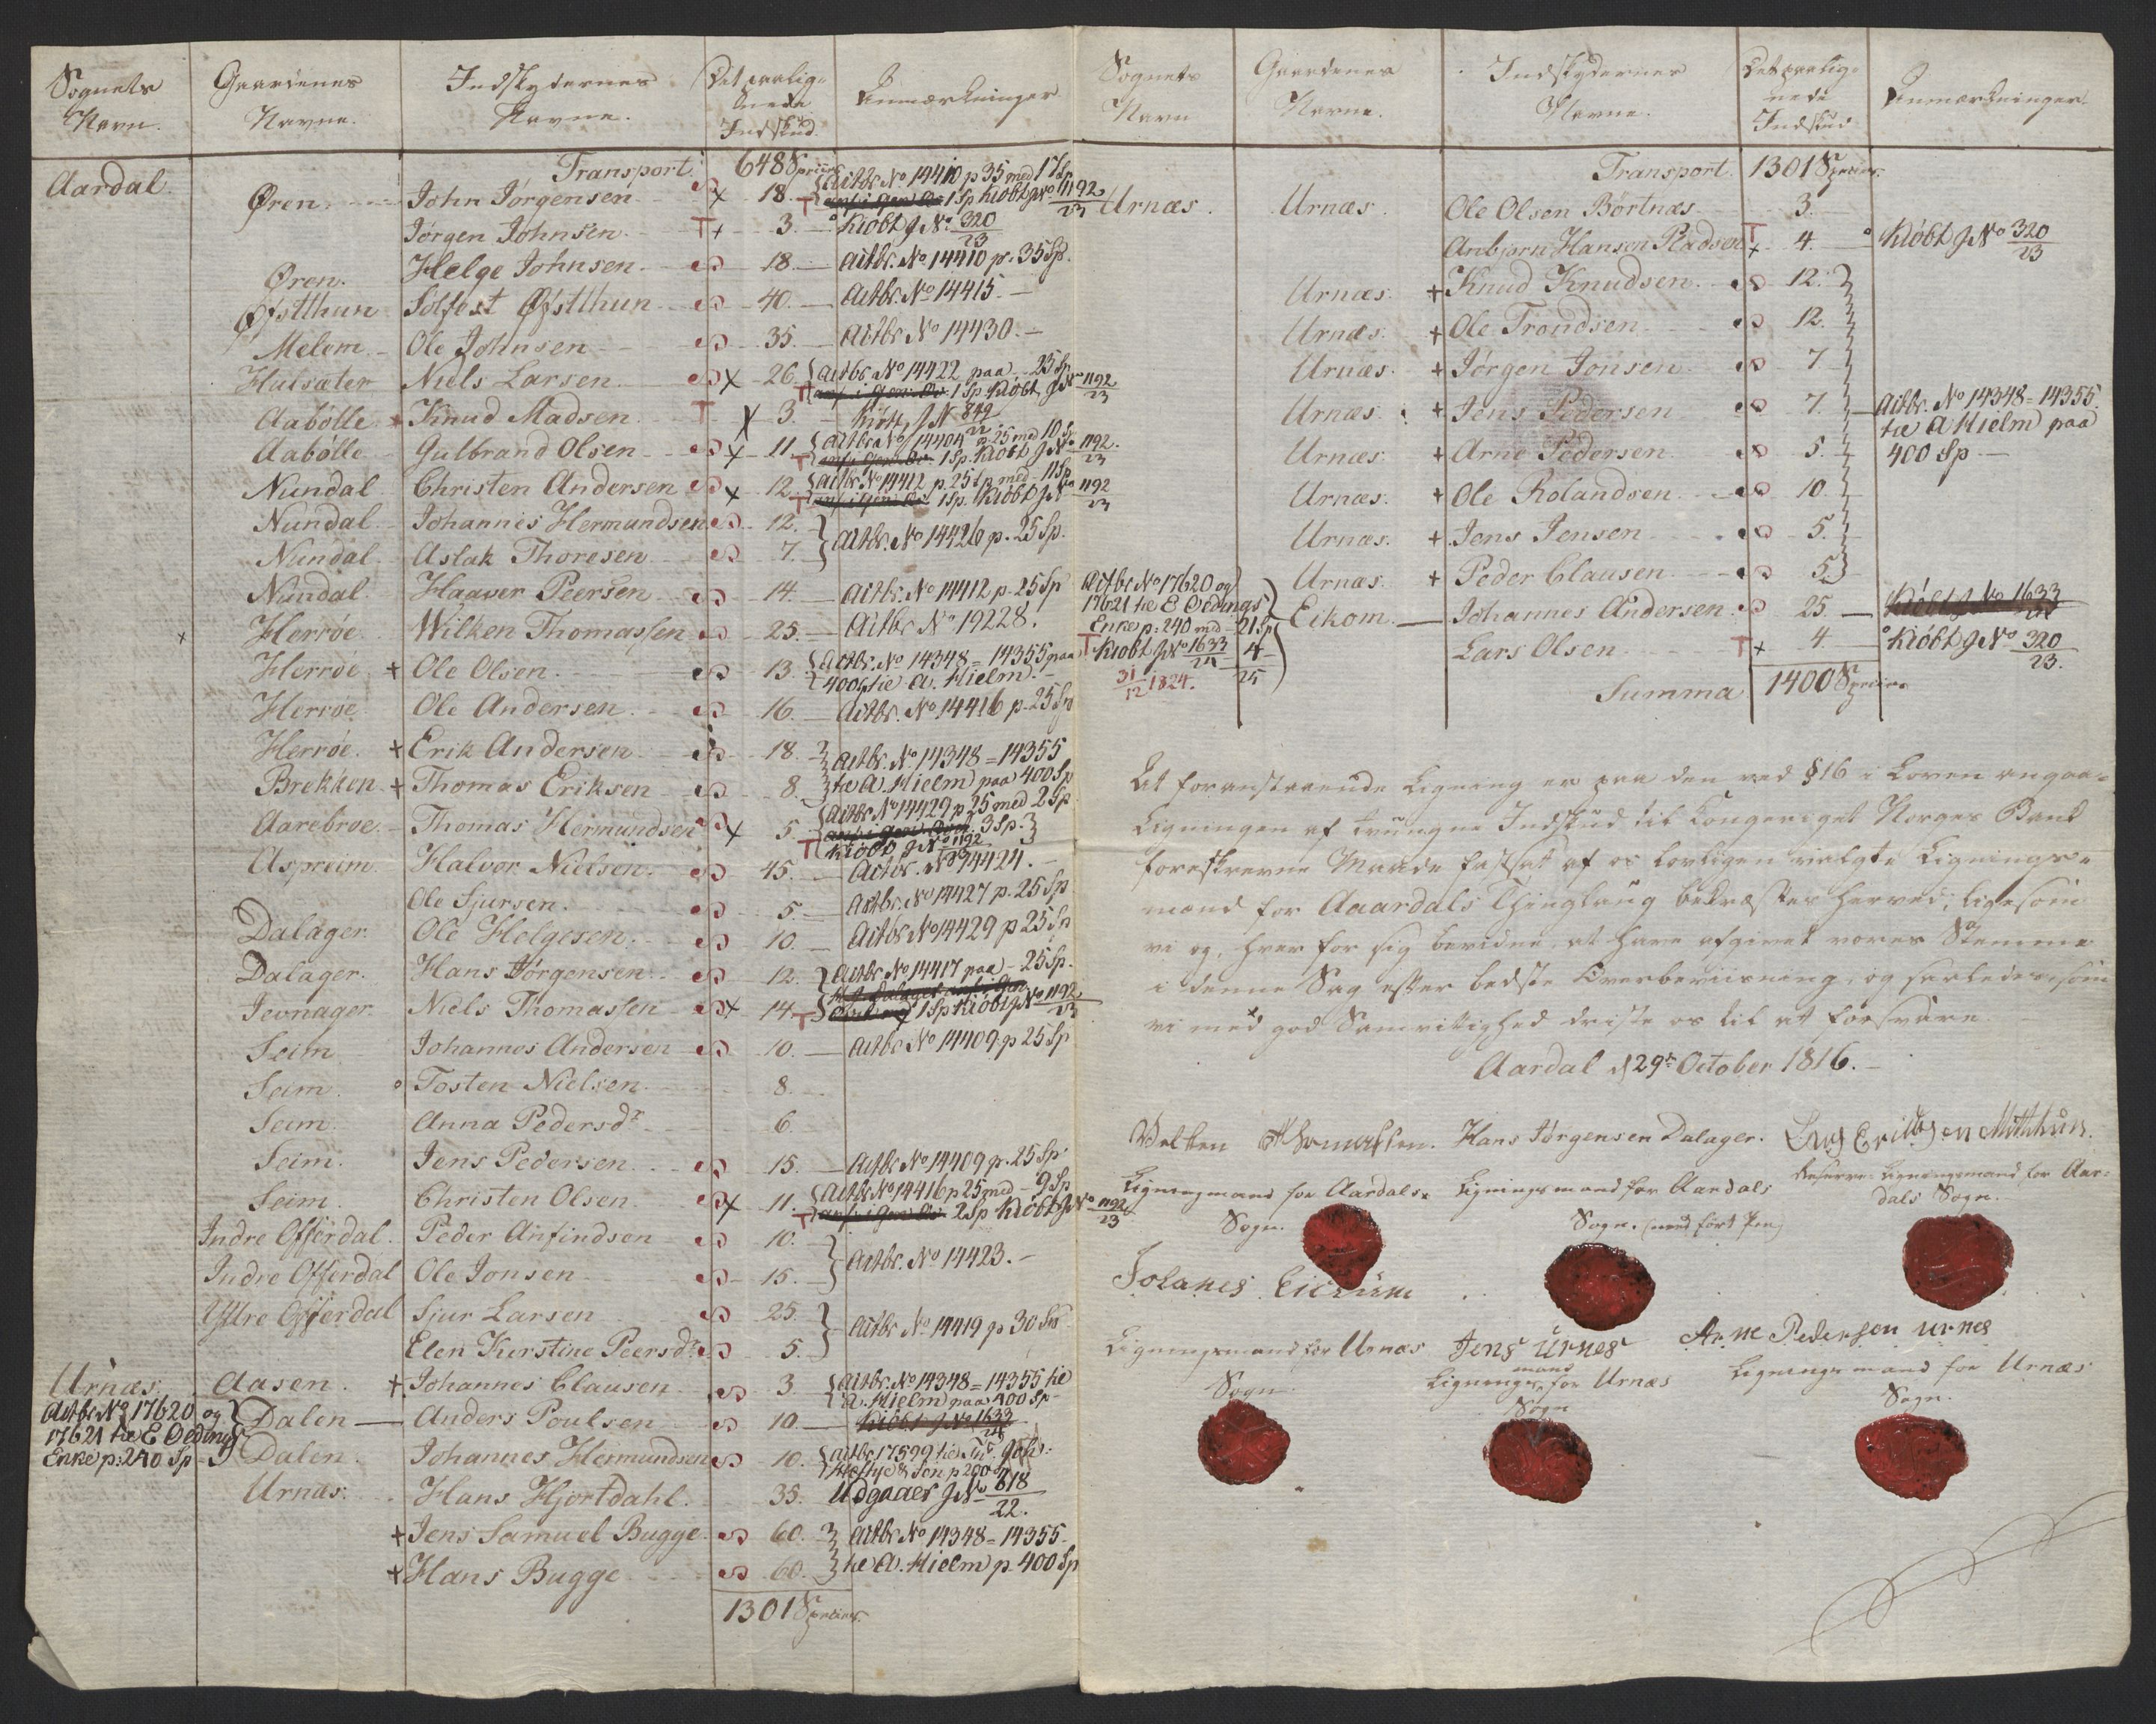 Sognets Navn. Gaardenes Navne. Indskydernes Navne. Det paalignede Indskud. Anmærkninger
Transport 648 Species
Aardal. Øren. John Jørgensen x 18. Actbr. No 14410 p 35 med 17 Sp
1 Sp Kiøbt J No 1192/23
Jørgen Johnsen T + 3. Kiøbt J No 320/23
Øren. Helge Johnsen 18. Actbr. No 14410 p. 35 Sp.
Øfstthun Solfest Øfstthun 40. Actbr. No 14415.
Melem. Ole Johnsen 35. Actbr No 14430.
Hulsæter Niels Larsen x 26. Actbr No 14422 paa 25 Sp
T 1 Sp Kiøbt J No 1192/23
Aabølle + Knud Madsen T x 3. Kiøbt J N 849/22
Aabølle Gulbrand Olsen x 11. Actbr No 14404 p 25 med 10 Sp
T 1 Sp. Kiøbt J No 1192/23
Nundal Christen Andersen x 12. Actbr. No 14412 p. 25 Sp med 11 Sp
T 1 Sp. Kiøbt J No 1192/23
Nundal Johannes Hermundsen 12.
Actbr. No 14426 p. 25 Sp.
Nundal Aslak Thoresen 7.
Nundal. Haaver Peersen 14. Actbr. No 14412 p 25 Sp
x Herrøe. Wilken Thomassen 25. Actbr No 19228.
Herrøe + Ole Olsen. 13. Actbr. No 14348 = 14355 paa
400 Sp til A. Hielm.
Herrøe Ole Andersen. 16. Actbr. No 14416 p. 25 Sp
Herrøe. + Erik Andersen 18. Actbr. No 14348 = 14355
Brekken + Thomas Eriksen 8. til A. Hielm paa 400 Sp
Aarebroe. Thomas Hermundsen x 5. Actbr No 14429 p 25 med 2 Sp
3 Sp.
T Kiøbt J No 1192/23
Aspreim. Halvor Nielsen. 45. Actbr. No 14424.
Ole Sjursen. 5. Actbr No 14427 p. 25 Sp
Dalager. Ole Helgesen. 10. Actbr No 14429 p 25 Sp
Dalager. Hans Jørgensen 12. Actbr No 14417 paa 25 Sp.
Jevnager. Niels Thomassen x 14. T 1 Sp Kiøbt J No 1192/23
Seim Johannes Andersen 10. Actbr No 14409 p 25 Sp
Seim. o Tosten Nielsen. 8.
Seim. Anna Pedersdr 6.
Seim. Jens Pedersen. 15. Actbr No 14409 p. 25 Sp
Seim. Christen Olsen x 11. Actbr No 14416 p 25 med 9 Sp
T 2 Sp Kiøbt J No 1192/23
Indre Offerdal. Peder Anfindsen 10.
Actbr. No 14423.
Indre Offerdal Ole Jonsen 15.
Ytre Offerdal Sjur Larsen 25.
Actbr No 14419 p 30 Sp
Elen Kirstine Peersdr 5.
Urnæs. Aasen. + Johannes Clausen 3 Actbr. No 14348 = 14355 til
A. Hielm paa 400 Sp
Actbr No 17620 og Dalen Anders Poulsen 10 Kiøbt J No 1633/24
17621 til E Oedings Dalen. Johannes Hermundsen 10.
Enke p: 240 Sp Actbr 17599 til
Heftye & Søn p 200 Sp
Urnæs. Hans Hjortdahl. 35. Udgaaer J No 618/22.
+ Jens Samuel Bugge 60. Actbr No 14348 = 14355
+ Hans Bugge 60. til A. Hielm p. 400 Sp
1301 Species.
Sognets Navn Gaardenes Navne. Indskydernes Navne. Det paalignede Indskud Anmærkninger.
Transport. 1301 Species.
Urnæs. Urnæs. Ole Olsen Børtnæs 3.
Anbjørn Hansen Pladsen T + 4. Kiøbt J No 320/23
Urnæs. + Knud Knudsen. 12.
Urnæs. + Ole Trondsen 12.
Urnæs. + Jørgen Jonsen 7.
Urnæs. + Jens Pedersen 7. Actbr. No 14348 = 14355
til A Hielm paa
Urnæs. + Arne Pedersen. 5. 400 Sp
Urnæs. + Ole Rolandsen. 10.
Urnæs. + Jens Jensen 5.
Urnæs. + Peder Clausen 5.
Actbr No 17620 og
17621 til E Oedings Eikom. Johannes Andersen 25 Kiøbt J No 1633/24
Enke p: 240 med 21 Sp
T Kiøbt J No 1633/24 4
31/12 1824. 25
Lars Olsen T + 4. Kiøbt J No 320/23.
Summa 1400 Species
At foranstaaende Ligning er paa den ved § 16 i Loven angaa-
Ligningen af tvungne Indskud til Kongeriget Norges Bank
foreskrevne Maade fastsat af os lovligen valgte Lignings-
mænd for Aaardals Thinglaug bekræftes herved; ligesom
vi og, hver for sig bevidne, at have afgivet vores Stemme
i denne Sag efter bedste Overbeviisning, og saaledes, som
vi med god Samvittighed driste os til at forsvare.
Aardal d 29de October 1816.
Velken Thomassen. Hans Jørgensen Dalager. Lars Erichsen Midthun.
Ligningsmand for Aardals Sogn. Ligningsmand for Aardals Sogn. (med ført Pen) Reserve Ligningsmand for Aardals Sogn.
Johanes Eickum Jens Urnes Arne Pederson urnes
Ligningsmand for Urnæs Sogn. Ligningsmand for Urnæs Sogn Ligningsmand for Urnæs Sogn.